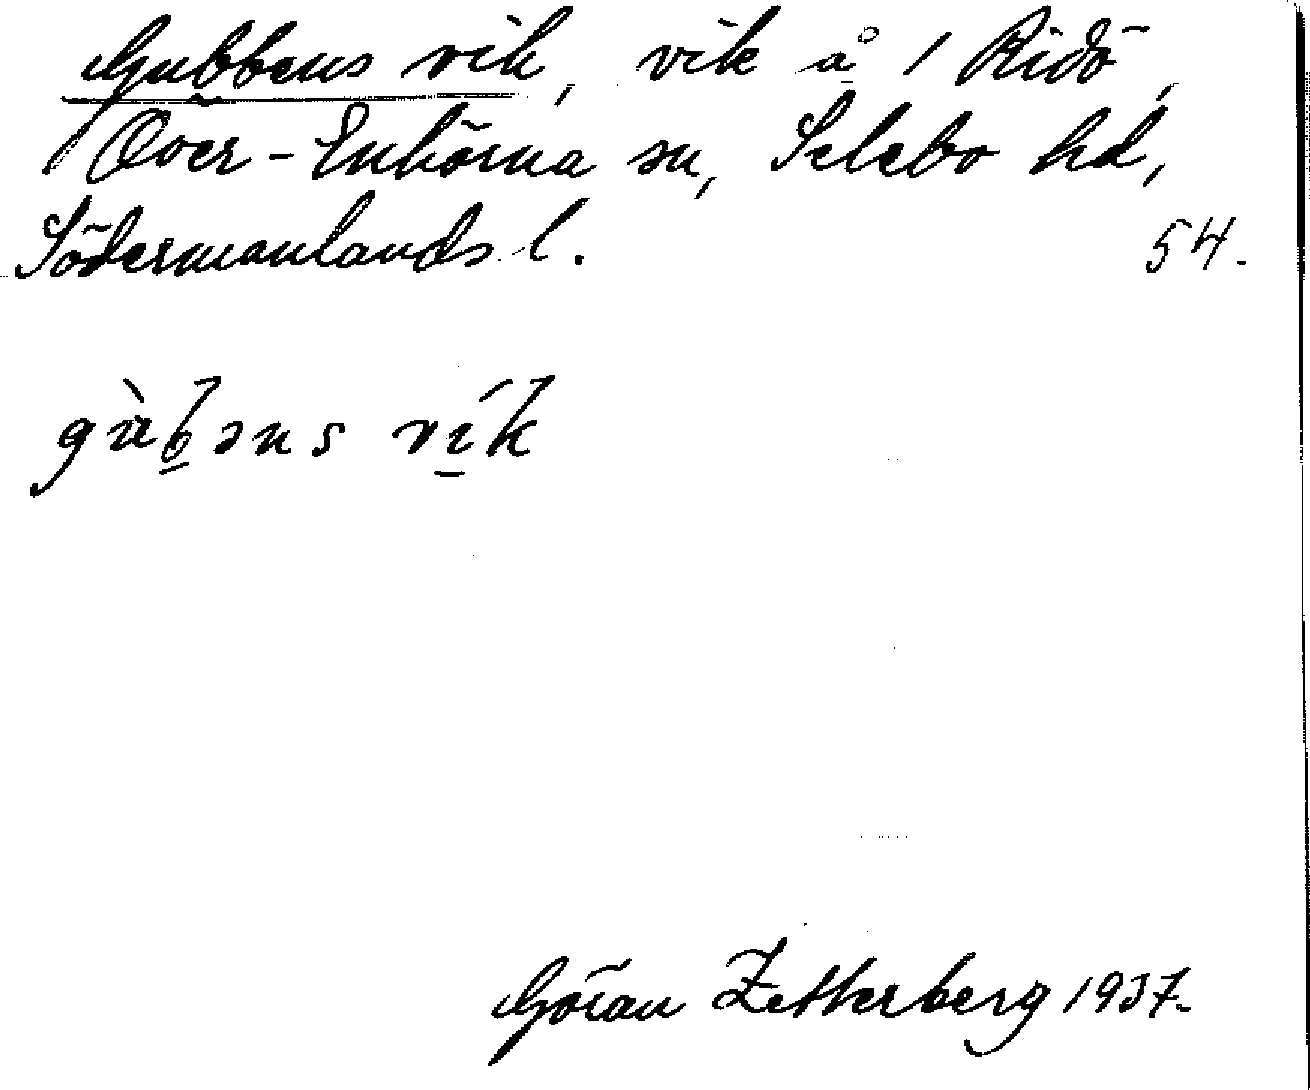 Gubbens vik, vik å 1 Ridö,
Över-Enhörna sn, Selebo hd,
Södermanlands l. 54.
gùb̲əns ví̲k
Göran Zetterberg 1937.